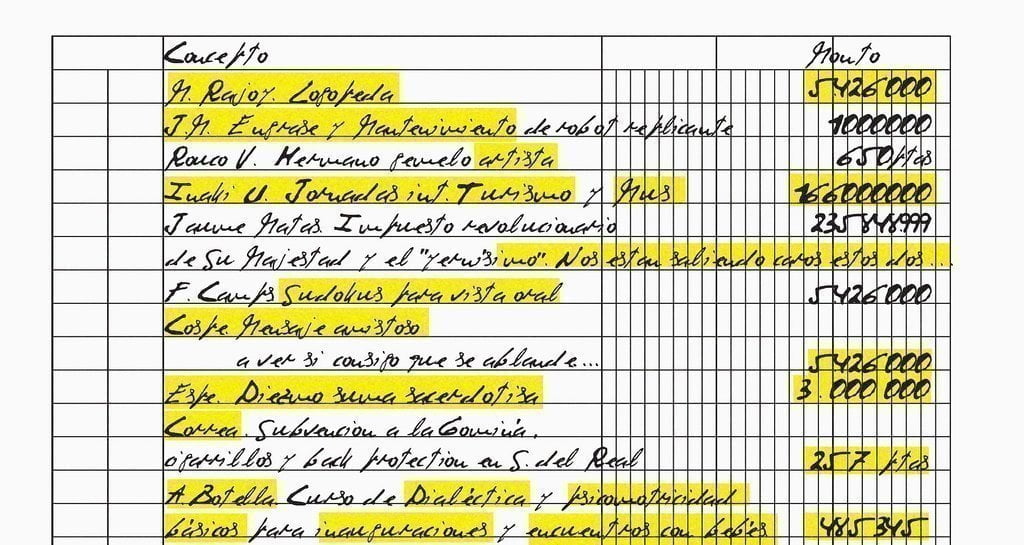 Concepto Monto
M. Rajoy. Logopeda 5426000
J.M. Engrase y Mantenimiento de robot replicante 1000000
Rouco V. Hermano gemelo artista 650 ptas
Iñaki U. Jornadas int. Turismo y Mus 166000000
Jaume Matas. Impuesto revolucionario 235848999
de Su Majestad y el "yernísimo". Nos estan saliendo caros estos dos...
F. Camps Sudokus para vista oral 5426000
Cospe. Mensaje amistoso
a ver si consigo que se ablande... 5426000
Espe. Diezmo suma sacerdotisa 3.000 000
Correa. Subvencion a la Gomina,
cigarrillos y back protection en S. del Real 257 ptas
A. Botella Curso de Dialéctica y psicomotricidad
básicos para inauguraciones y encuentros con bebés 485345